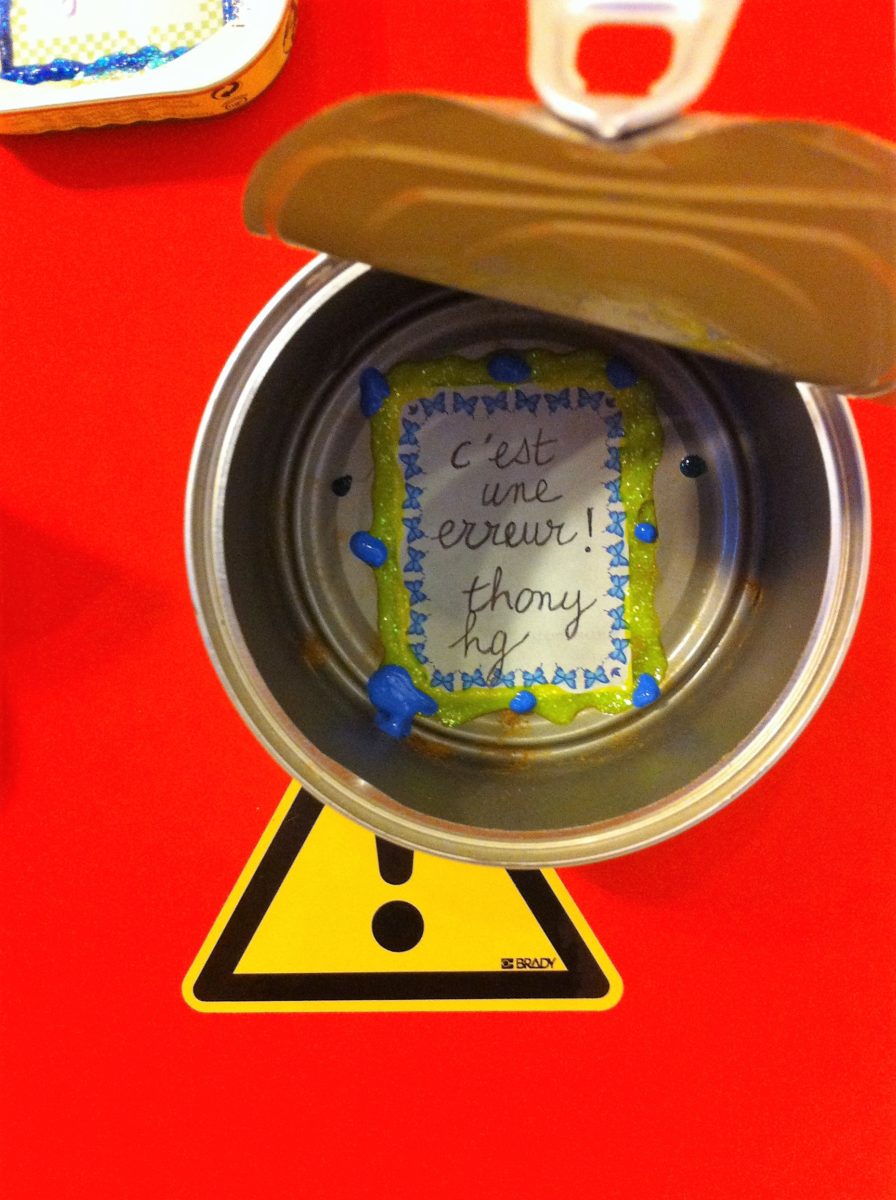 c'est
une
erreur!
thony
hg
!
BRADY